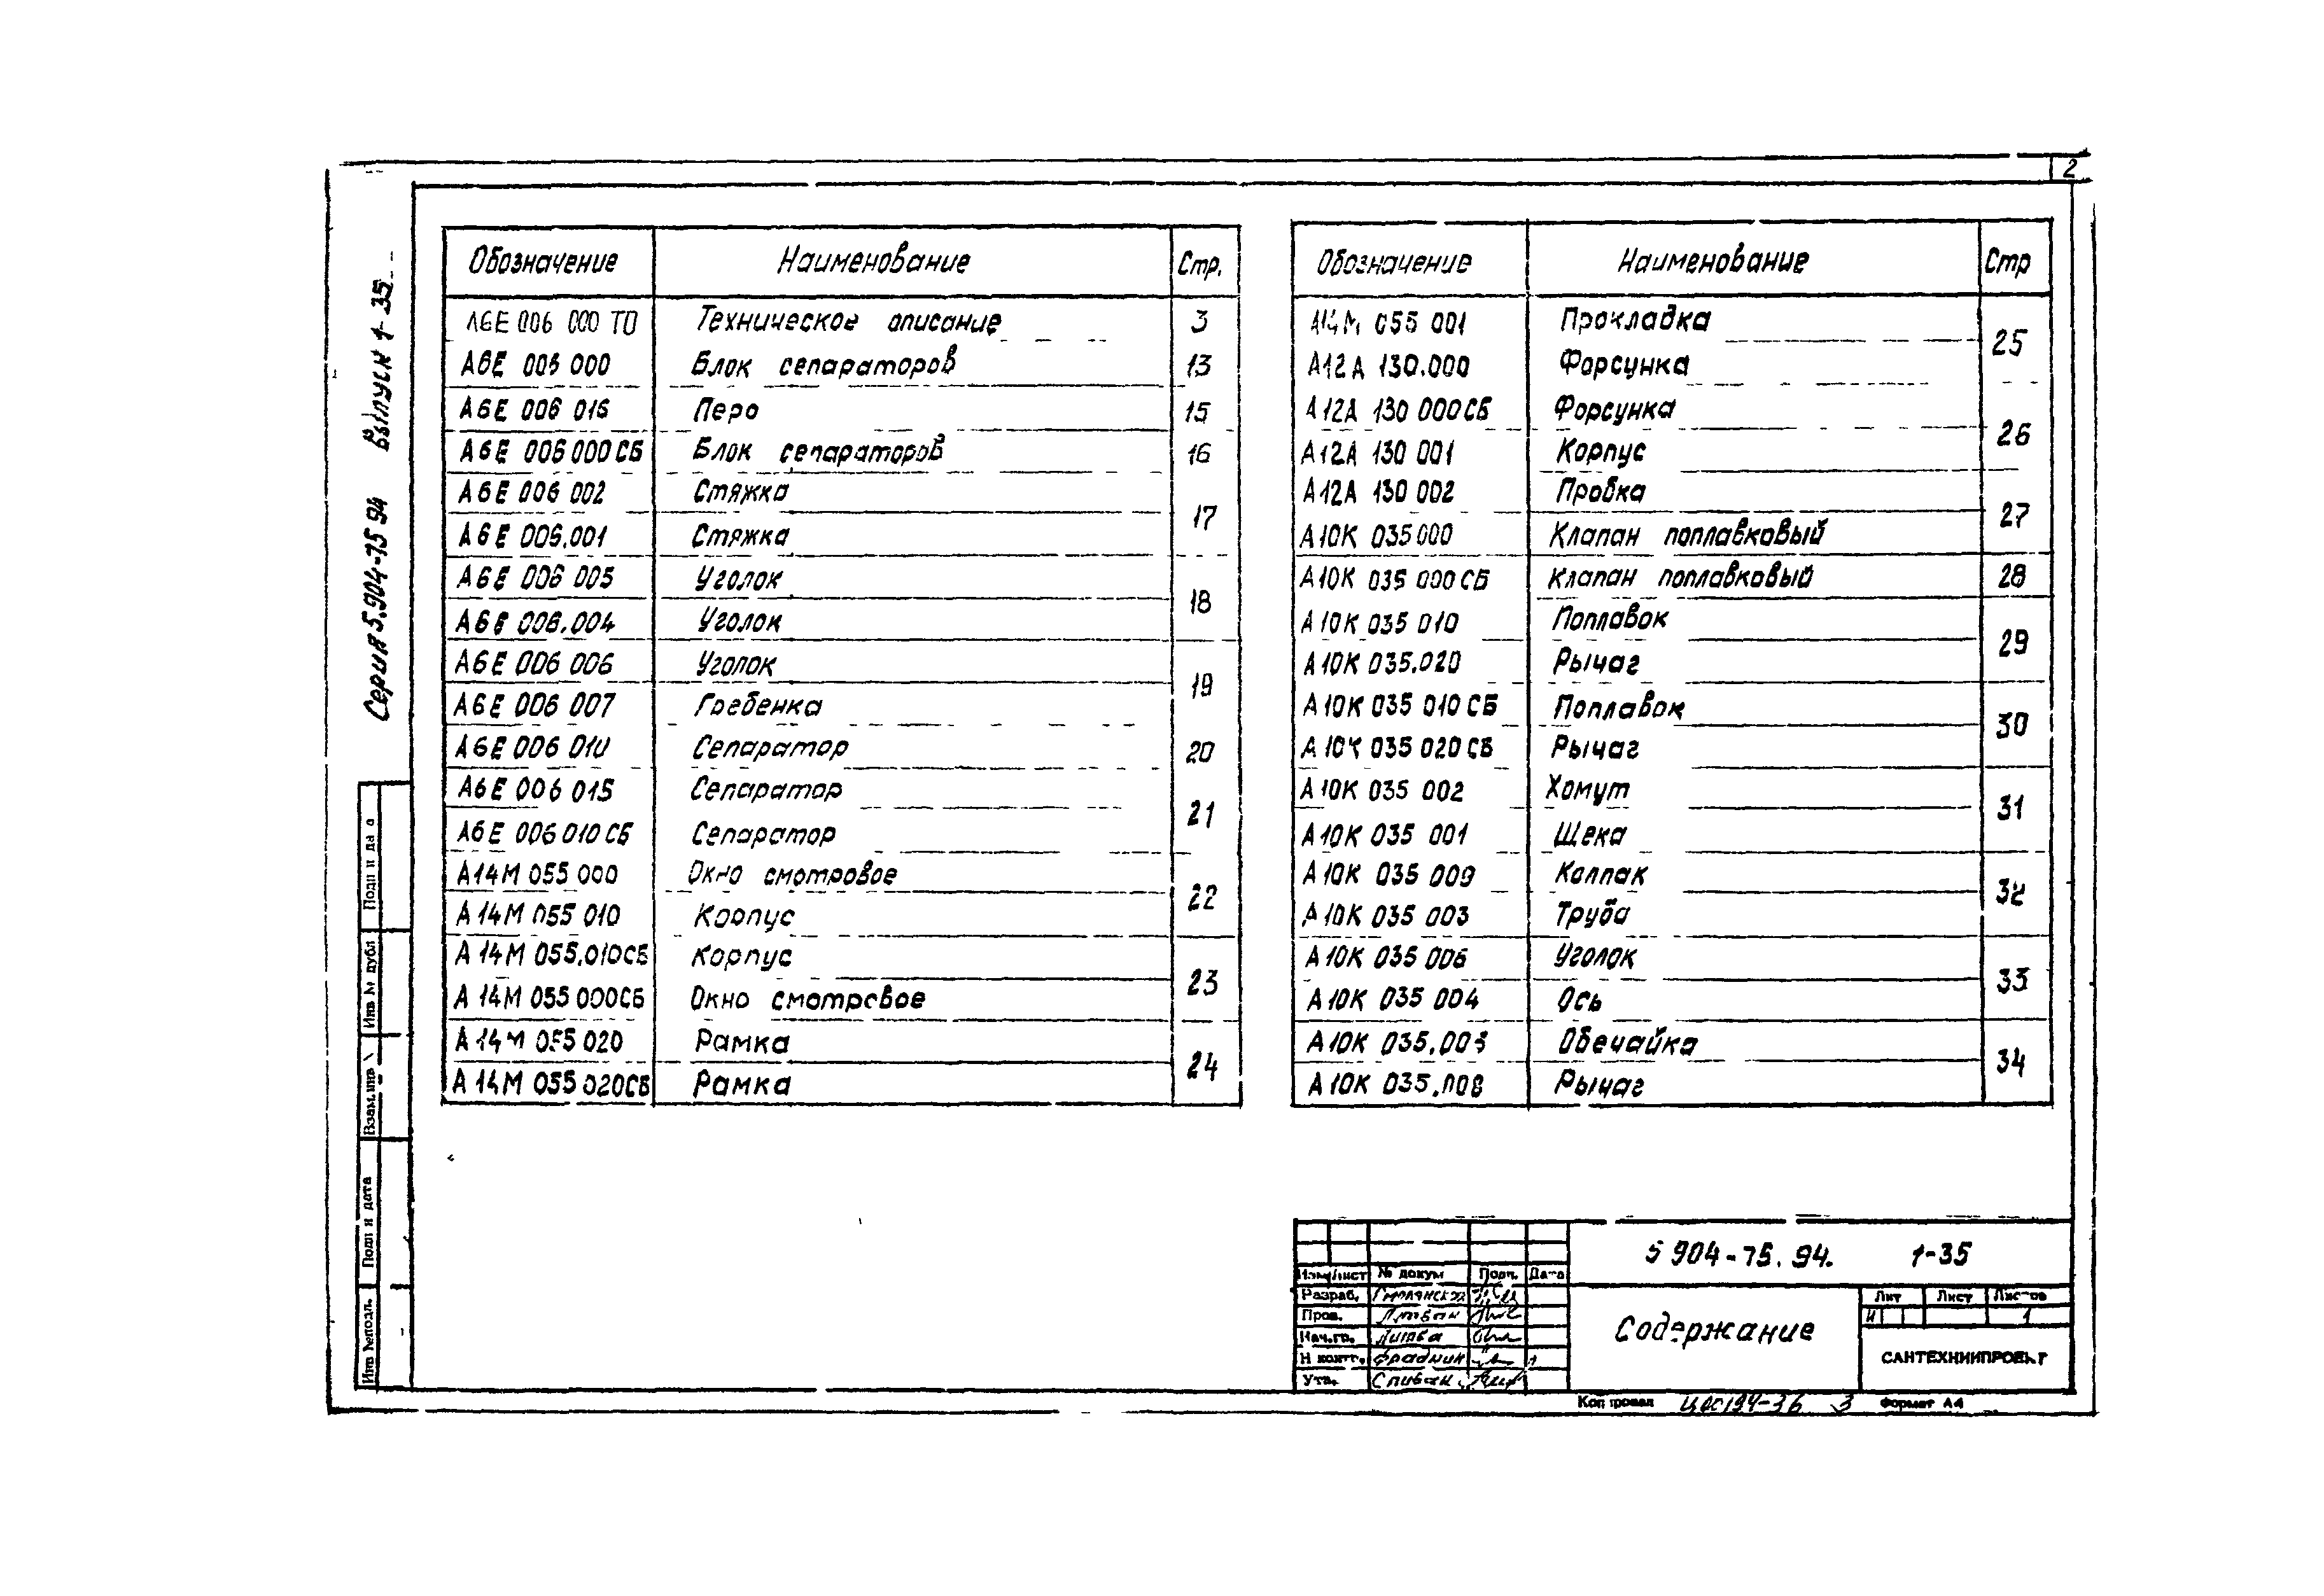 2
Серия 5.904-75 94 Выпуск 1-35
Обозначение Наименование Стр.
А6Е 006 000 ТО Техническое описание 3
А6Е 006 000 Блок сепараторов 13
А6Е 006 016 Перо 15
А6Е 006 000 СБ Блок сепараторов 16
А6Е 006 002 Стяжка
17
А6Е 006.001 Стяжка
А6Е 006 005 Уголок
18
А6Е 006.004 Уголок
А6Е 006 006 Уголок
19
А6Е 006 007 Гребенка
А6Е 006 010 Сепаратор 20
А6Е 006 015 Сепаратор
21
А6Е 006 010 СБ Сепаратор
А14М 055 000 Окно смотровое
22
А14М 055 010 Корпус
А14М 055.010СБ Корпус
23
А14М 055 000СБ Окно смотровое
А14М 055 020 Рамка
24
А14М 055 020СБ Рамка
Обозначение Наименование Стр
А14М 055 001 Прокладка
25
А12А 130.000 Форсунка
А12А 130 000 СБ Форсунка
26
А12А 130 001 Корпус
А12А 130 002 Пробка
27
А10К 035 000 Клапан поплавковый
А10К 035 000 СБ Клапан поплавковый 28
А10К 035 010 Поплавок
29
А10К 035.020 Рычаг
А10К 035 010 СБ Поплавок
30
А10К 035 020 СБ Рычаг
А10К 035 002 Хомут
31
А10К 035 001 Щека
А10К 035 009 Колпак
32
А10К 035 003 Труба
А10К 035 006 Уголок
33
А10К 035 004 Ось
А10К 035. Обечайка
34
А10К 035.008 Рычаг
Подп и дата
Инв № дубл
Взам. инв №
Подп и дата
Инв № подл.
5 904-75. 94. 1-35
Изм Лист № докум Подп. Дата
Разраб.
Пров.
Нач.гр. Литва
Н контр. Фрадкин
Утв. Спивак
Содержание
Лит Лист Листов
И 1
САНТЕХНИИПРОЕКТ
Копировал 3 Формат А4